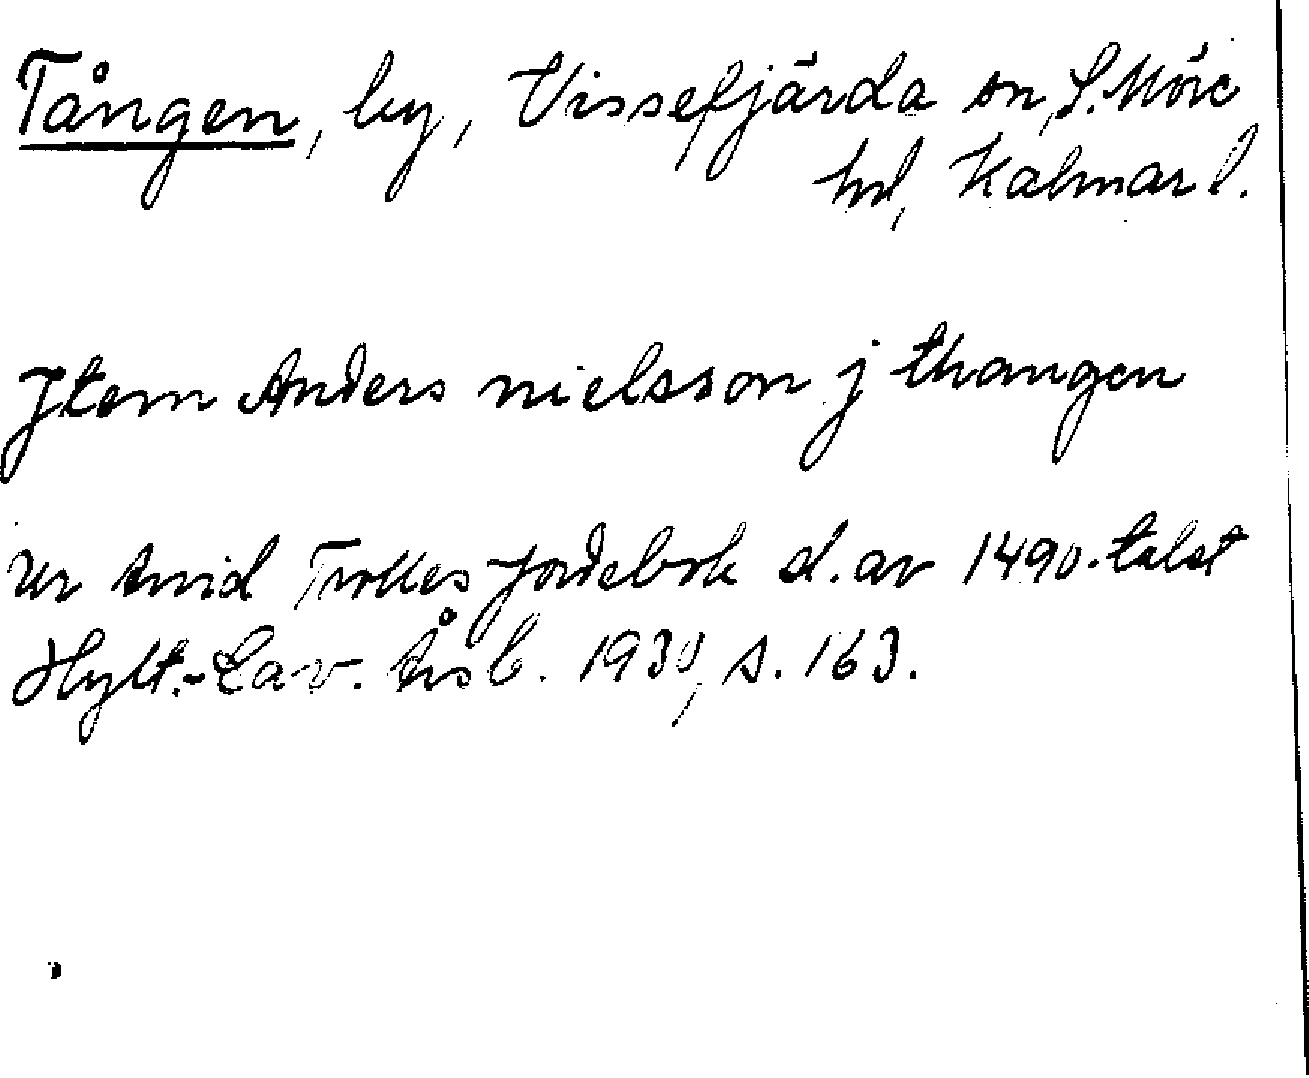 Tången, by, Vissefjärda sn, S. Möre
hd, Kalmar l.
Jtem Anders nielsson j thangen
Ur Arvid Trolles jordebok sl. av 1490-talet
Hylt.-Cav. Årsb. 1930, s. 163.